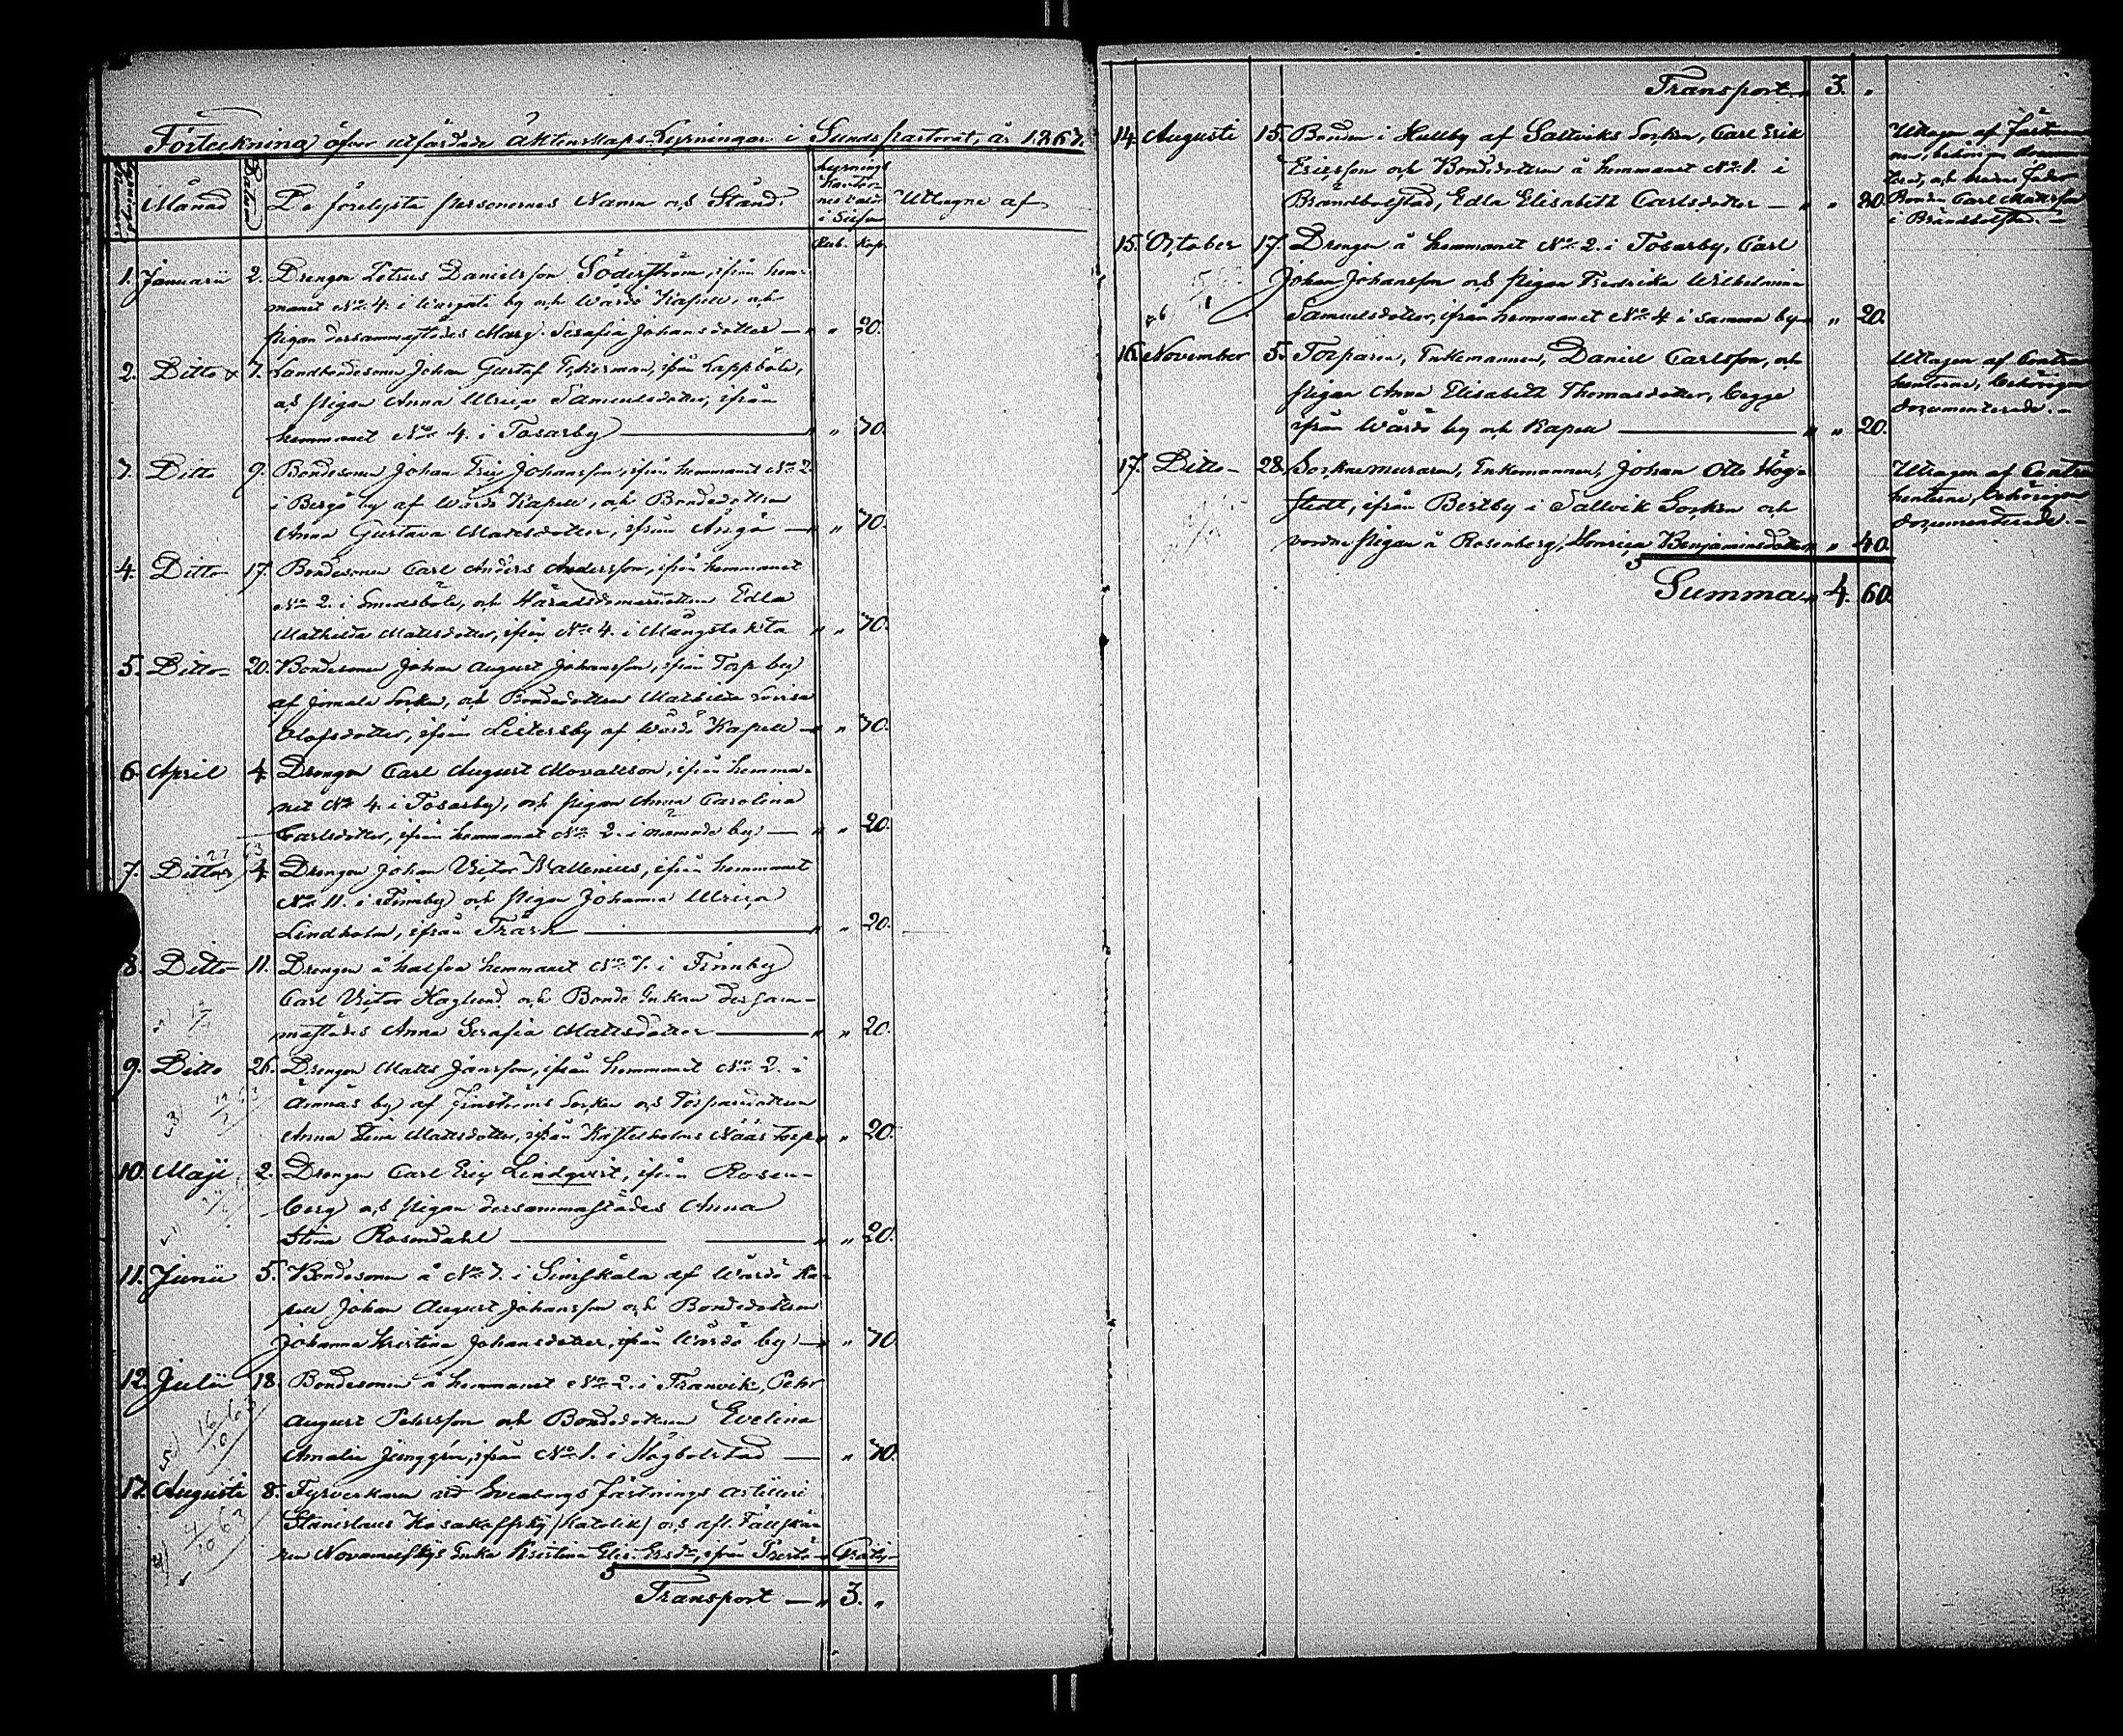 Förteckning öfver utfärdade Äktenskaps-Lysningar i Sunds pastorat, år 1863.
Månad Datum De förelyste personernes Namn och Stånd. Lysnings
i Silfver Uttagne af
Rub. Kop.
1. Januarii 2. Drengen Petrus Danielsson Söderström, ifrån hem-
manet No 4. i Wargata by och Wårdö Kapell, och
pigan dersammastädes Marg. Serafia Johansdotter — " " 20.
2. Ditto 7. Landbondesonen Johan Gustaf Eckerman, ifrån Lappböle,
och pigan Anna Ulrica Samuelsdotter, ifrån
hemmanet No 4. i Tosarby — " " 70.
7. Ditto 9. Bondesonen Johan Eric Johansson, ifrån hemmanet No 2
i Bergö by af Wårdö Kapell, och Bondedottren
Anna Gustava Mattsdotter, ifrån Ängö — " " 70.
4. Ditto 17. Bondesonen Carl Anders Andersson, ifrån hemmanet
No 2. i Smedsböle, och Häradsdomaredottren Edla
Mathilda Mattsdotter, ifrån No 4. i Mångstekta " " 70.
5. Ditto 20. Bondesonen Johan August Johansson, ifrån Torp by
af Jomala Socken, och Bondedottren Mathilda Lovisa
Olofsdotter, ifrån Listersby af Wårdö Kapell — " " 70.
6. April 4. Drengen Carl August Morattson, ifrån hemma-
net No 4. i Tosarby, och pigan Anna Carolina
Carlsdotter, ifrån hemmanet No 2. i nämnde by — " " 20.
7. Ditto 4. Drengen Johan Victor Wallenius, ifrån hemmanet
No 11. i Finnby och pigan Johanna Ulrica
Lindholm, ifrån Träsk — " " 20.
8. Ditto 11. Drengen å halfva hemmanet No 7. i Finnby
Carl Victor Haglund och Bonde Enkan dersam-
mastädes Anna Serafia Mattsdotter — " " 20.
9. Ditto 26. Drengen Matts Jansson, ifrån hemmanet No 2. i
Ämnäs by af Finströms Socken och Torparedottren
Anna Stina Mattsdotter, ifrån Kastelholms Näås torp " " 20.
10. Maji 2. Drengen Carl Eric Lindqvist, ifrån Rosen-
berg och pigan dersammastädes Anna
Stina Rosendahl — " " 20.
11. Junii 5. Bondesonen å No 7. i Simskäla af Wårdö Ka-
pell Johan August Johansson och Bondedottren
Johanna Kristina Johansdotter, ifrån Wårdö by — " " 70.
12. Julii 18. Bondesonen å hemmanet No 2. i Tranvik, Pehr
August Pettersson och Bondedottren Evelina
Amalia Ljunggrén, ifrån No 1. i Högbolstad — " 70.
17. Augusti 8. Fyrverkaren vid Sveaborgs Fästnings artilleri
Stanislaus Kosakoffsky (Katolik) och afl. Fältskä-
ren Novameiskys Enka Kristina Elis. Ersdr, ifrån Prestö — Gratis
Transport — " 3. "
Transport " 3. "
14. Augusti 15. Bonden i Hullby af Saltviks Socken, Carl Erik
Ericsson och Bondedottren å hemmanet No 1. i
Brändbolstad, Edla Elisabeth Carlsdotter — " " 80.
Uttagen af Fästman-
nen, behörigen dokumen-
terad, och brudens fader
Bonden Carl Mattsson
i Brändbolstad.
15. October 17. Drengen å hemmanet No 2. i Tosarby, Carl
Johan Johansson och pigan Fredrika Wilhelmina
Samuelsdotter, ifrån hemmanet No 4 i samma by " " 20.
16. November 5. Torparen, Enkemannen, Daniel Carlsson, och
pigan Anna Elisabeth Thomasdotter, begge
ifrån Wårdö by och Kapell — " " 20.
Uttagen af Contra-
henterne, behörigen
documenterade. -
17. Ditto 28. Socknemuraren, Enkemannen, Johan Otto Hög-
stedt, ifrån Bertby i Saltvik Socken och
vordne pigan å Rosenberg, Henrica Benjaminsdotter " " 40.
Uttagen af Contra-
henterne, behörigen
documenterade. -
Summa " 4. 60.